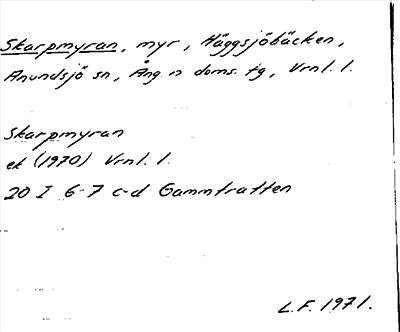 Skarpmyran, myr, Häggsjöbäcken,
Anundsjö sn, Ång. n doms. tg, Vrnl. l.
Skarpmyran
ek (1970) Vrnl. l.
20 I 6-7 c-d Gammtratten
L.F. 1971.